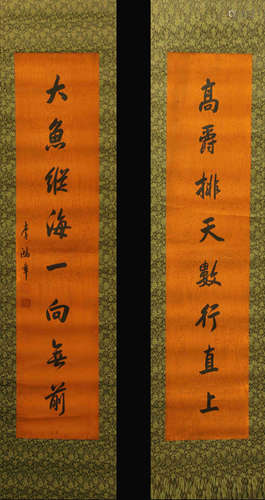 高爵排天數行直上
大魚縱海一向無前
李鴻章